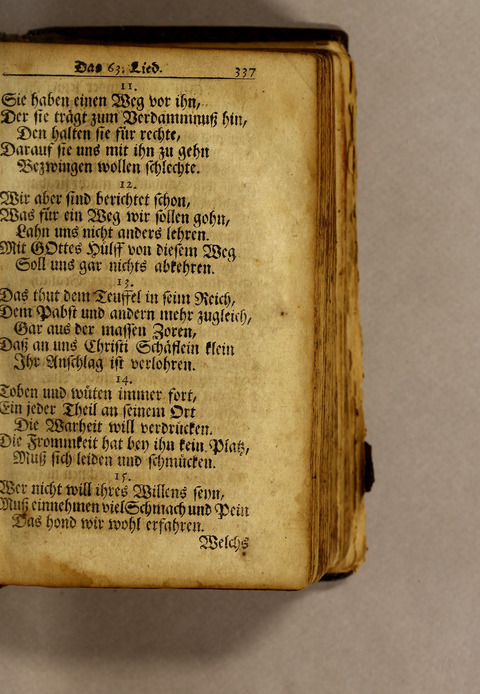 Das 63. Lied. 337
11.
Sie haben einen Weg vor ihn,
Der sie trägt zum Verdammnuß hin,
Den halten sie für rechte,
Darauf sie uns mit ihn zu gehn
Bezwingen wollen schlechte.
12.
Wir aber sind berichtet schon,
Was für ein Weg wir sollen gohn,
Lahn uns nicht anders lehren.
Mit GOttes Hülff von diesem Weg
Soll uns gar nichts abkehren.
13.
Das thut dem Teuffel in seim Reich,
Dem Pabst und andern mehr zugleich,
Gar aus der massen Zoren,
Daß an uns Christi Schäflein klein
Ihr Anschlag ist verlohren.
14.
Toben und wüten immer fort,
Ein jeder Theil an seinem Ort
Die Warheit will verdrücken.
Die Frommkeit hat bey ihn kein Platz,
Muß sich leiden und schmücken.
15.
Wer nicht will ihres Willens seyn,
Muß einnehmen viel Schmach und Pein
Das hond wir wohl erfahren.
Welchs